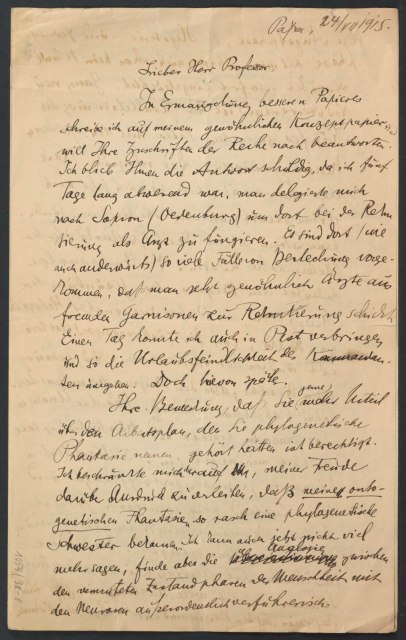 Pápa, 24/VII 1915.
Lieber Herr Professor.
In Ermanglung besseren Papieres
schreibe ich auf meinem gewöhnlichen Konzeptpapier und
will Ihre Zuschriften der Reihe nach beantworten.
Ich blieb Ihnen die Antwort schuldig, da ich fünf
Tage lang abwesend war, man delegierte mich
nach Sopron (Oedenburg) um dort bei der Rekru-
tierung als Arzt zu fungieren. Es sind dort (wie
auch anderwärts) so viele Fälle von Bestechung vorge-
kommen, daß man sehr gewöhnlich Ärzte aus
fremden Garnisonen zur Rekrutierung schickt.
Einen Tag konnte ich auch in Pest verbringen
und so die Urlaubsfeindlichkeit des Kommandan-
ten umgehen. Doch hievon später.
Ihre Bemerkung, daß Sie gerne mehr Urteil
über den Arbeitsplan, den Sie phylogenetische
Phantasie nennen, gehört hätten ist berechtigt.
Ich beschränkte mich darauf, meiner Freude
darüber Ausdruck zu verleihen, daß meine onto-
genetischen Phantasien so rasch eine phylogenetische
Schwester bekamen. Ich kann auch jetzt nicht viel
mehr sagen, finde aber die Analogie zwischen
den vermuteten Zustandsphasen der Menschheit mit
den Neurosen außerordentlich verführerisch.